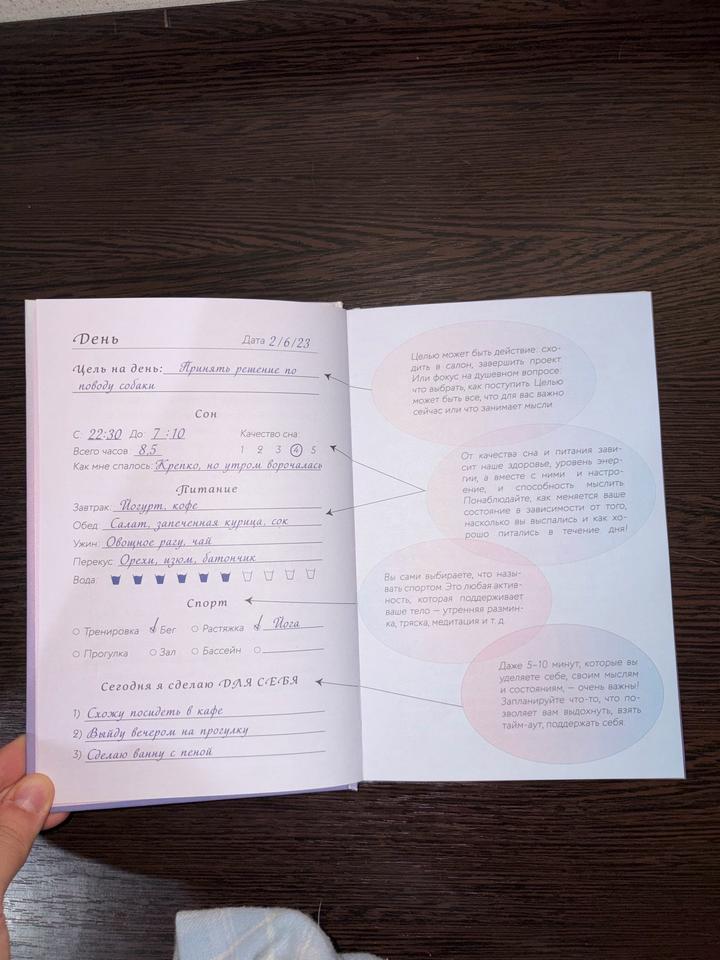 День Дата 2/6/23
Цель на день: Принять решение по
поводу собаки
Сон
С: 22:30 До: 7:10 Качество сна:
Всего часов 8,5 1 2 3 4 5
Как мне спалось: Крепко, но утром ворочалась
Питание
Завтрак: Йогурт, кофе
Обед: Салат, запеченная курица, сок
Ужин: Овощное рагу, чай
Перекус: Орехи, изюм, батончик
Вода:
Спорт
Тренировка Бег Растяжка Йога
Прогулка Зал Бассейн
Сегодня я сделаю ДЛЯ СЕБЯ
1) Схожу посидеть в кафе
2) Выйду вечером на прогулку
3) Сделаю ванну с пеной
Целью может быть действие: схо-
дить в салон, завершить проект
Или фокус на душевном вопросе:
что выбрать, как поступить. Целью
может быть все, что для вас важно
сейчас или что занимает мысли.
От качества сна и питания зави-
сит наше здоровье, уровень энер-
гии, а вместе с ними и настро-
ение, и способность мыслить.
Понаблюдайте, как меняется ваше
состояние в зависимости от того,
насколько вы выспались и как хо-
рошо питались в течение дня!
Вы сами выбираете, что назы-
вать спортом. Это любая актив-
ность, которая поддерживает
ваше тело — утренняя размин-
ка, тряска, медитация и т.д.
Даже 5–10 минут, которые вы
уделяете себе, своим мыслям
и состояниям, — очень важны!
Запланируйте что-то, что по-
зволяет вам выдохнуть, взять
тайм-аут, поддержать себя.